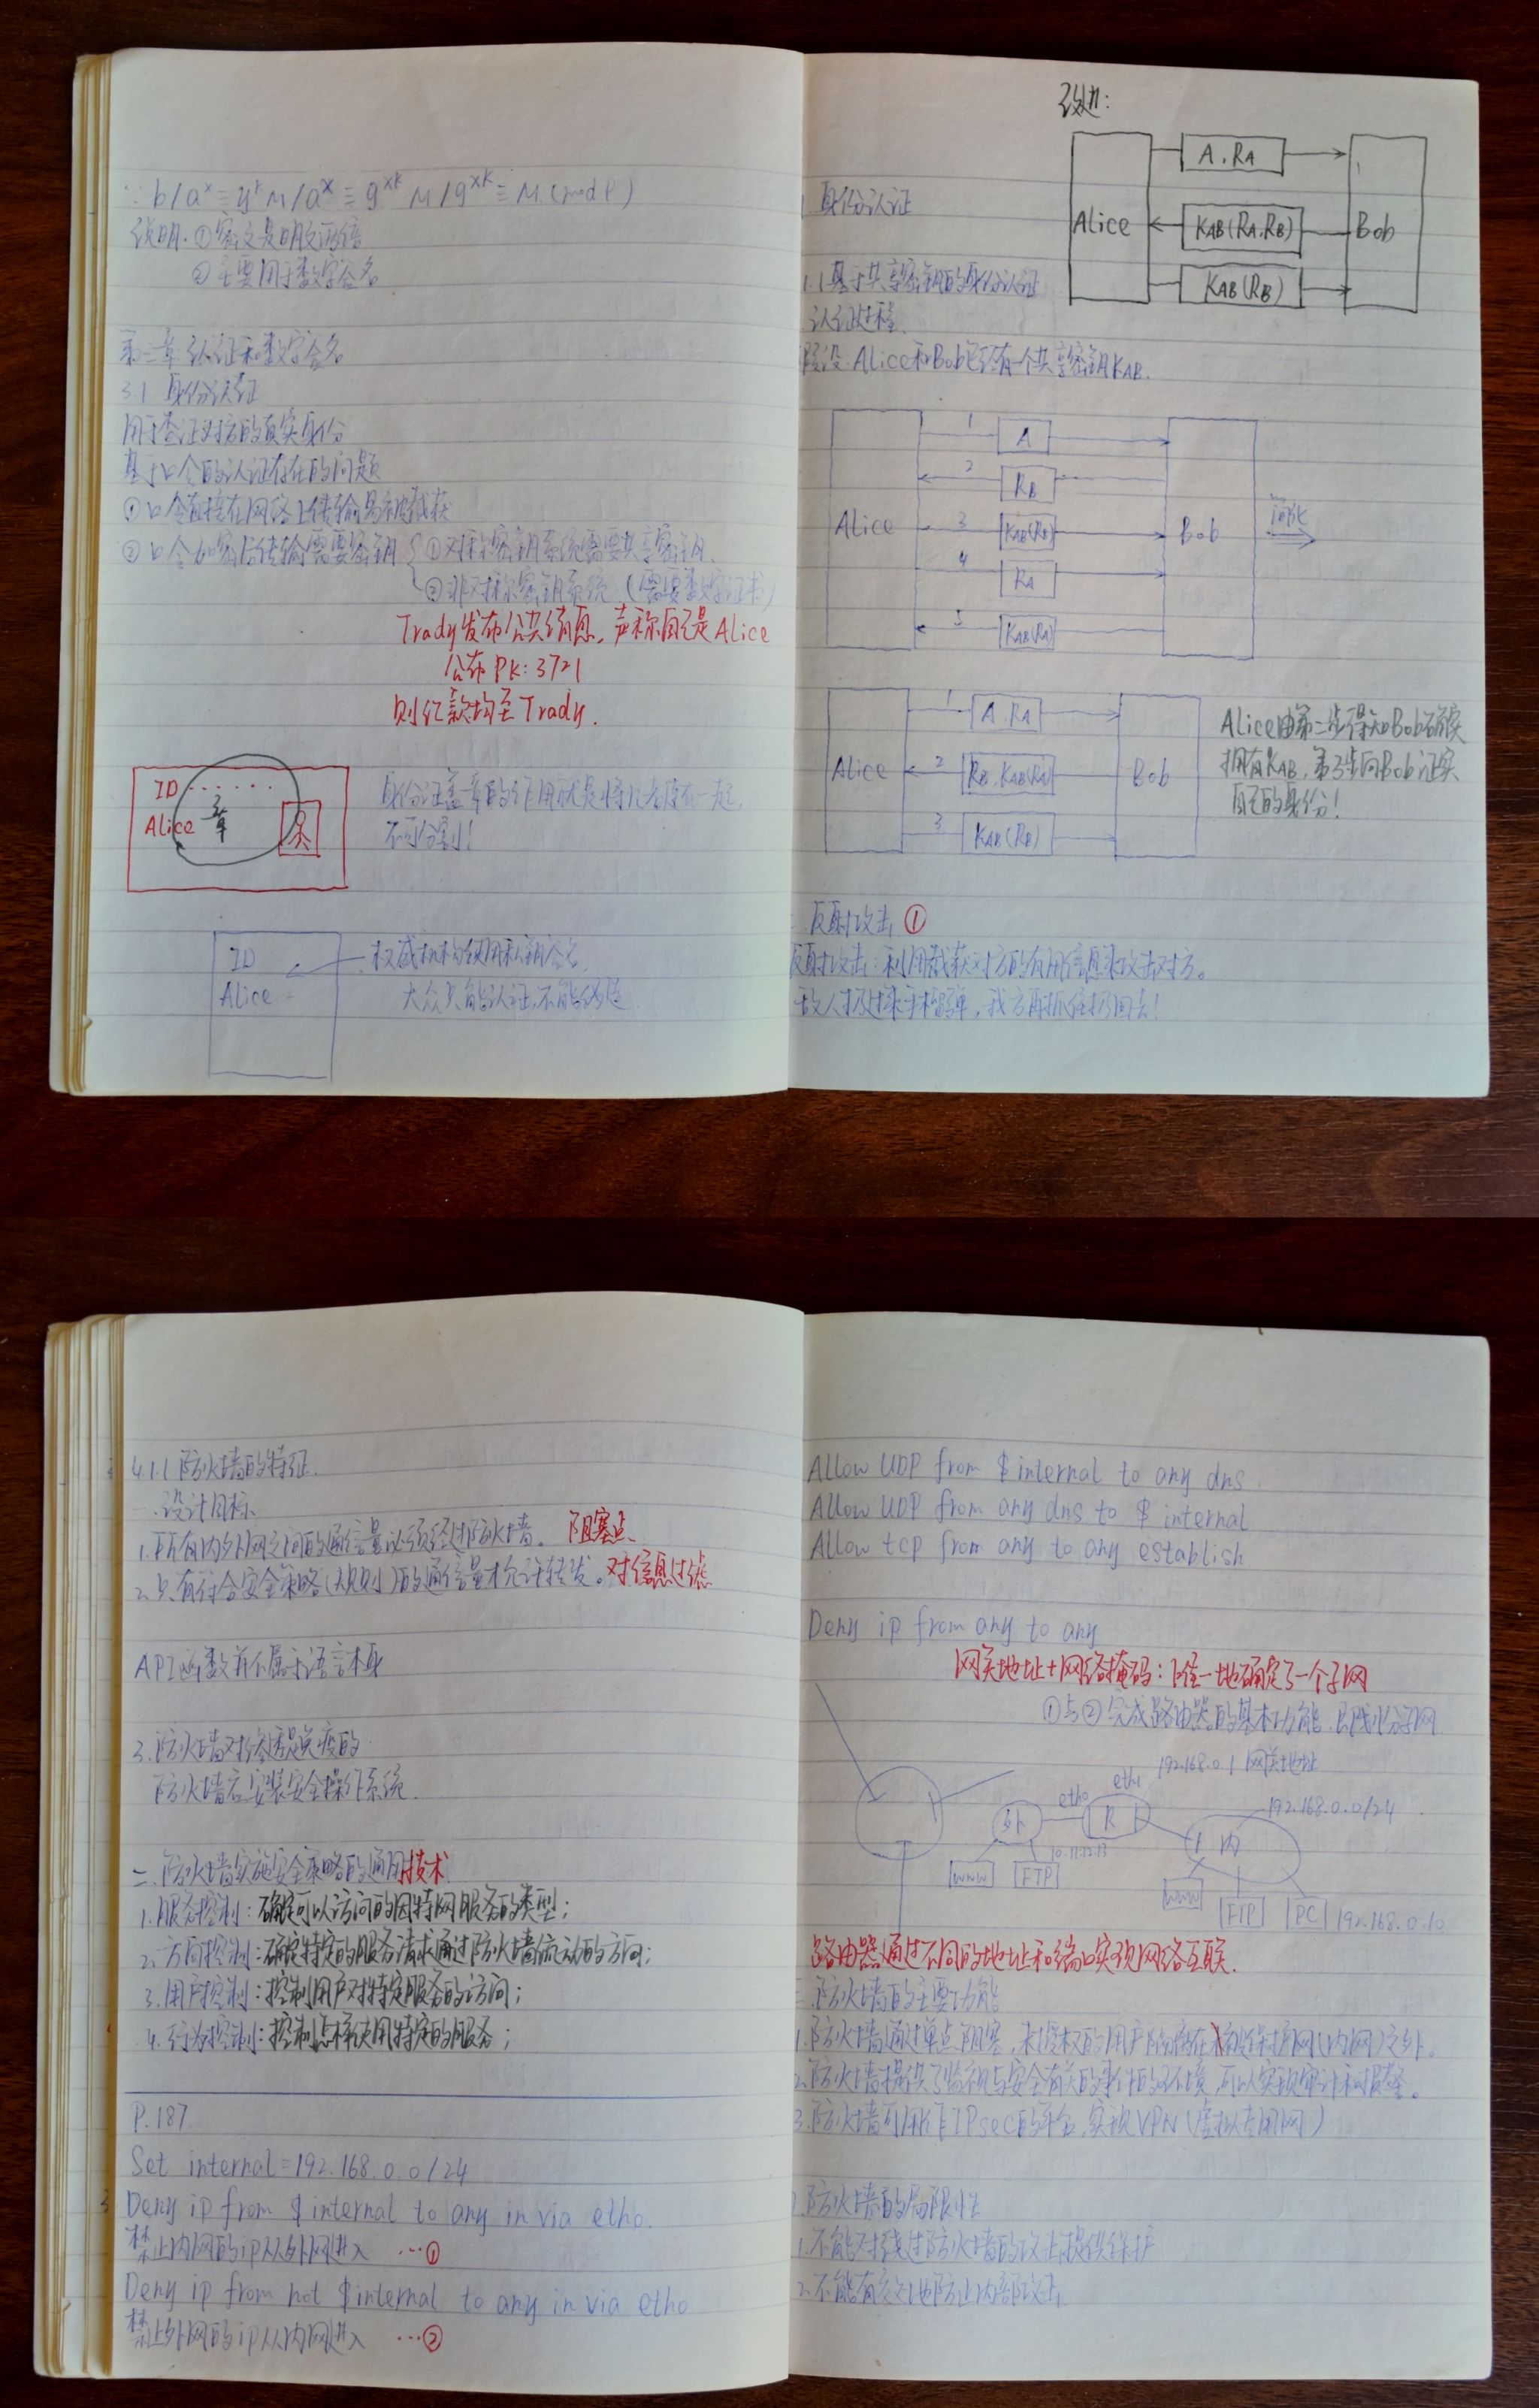 ∵ b/aˣ ≡ yᵏM/aˣ ≡ gˣᵏM/gˣᵏ ≡ M (mod P)
说明: ①密文是明文两倍
②主要用于数字签名
第三章 认证和数字签名
3.1 身份认证
用于查证对方的真实身份
基于口令的认证存在的问题
①口令直接在网络上传输易被截获
②口令加密后传输需要密钥 { ①对称密钥系统需要共享密钥.
②非对称密钥系统 (需要数字证书)
Trady发布公共消息, 声称自己是Alice
公布 PK: 3721
则汇款均至Trady.
ID ......
Alice
章
身份证盖章的作用就是将几者绑在一起,
不可分割!
ID
Alice
权威机构使用私钥签名.
大众只能认证,不能伪造
改进:
Alice
A.RA
KAB(RA,RB)
KAB(RB)
Bob
身份认证
1.1 基于共享密钥的身份认证
认证过程
假设: Alice和Bob已经有一个共享密钥KAB.
Alice
1 A
2 RB
3 KAB(RB)
4 RA
5 KAB(RA)
Bob
简化
Alice
1 A.RA
2 RB.KAB(RA)
3 KAB(RB)
Bob
Alice由第二步得知Bob确实
拥有KAB, 第3步向Bob证实
自己的身份!
二. 反射攻击 ①
反射攻击: 利用截获对方的有用信息来攻击对方。
敌人扔过来手榴弹, 我方再抓住扔回去!
4.1.1 防火墙的特征.
一.设计目标
1.所有内外网之间的通信量必须经过防火墙。 阻塞点
2.只有符合安全策略(规则)的通信量才允许转发。对信息过滤
API函数并不属于语言本身
3.防火墙对渗透是免疫的
防火墙应安装安全操作系统.
二.防火墙实施安全策略的通用技术
1.服务控制: 确定可以访问的因特网服务的类型;
2.方向控制: 确定特定的服务请求通过防火墙流动的方向;
3.用户控制: 控制用户对特定服务的访问;
4.行为控制: 控制怎样使用特定的服务;
P.187
Set internal=192.168.0.0/24
Deny ip from $internal to any in via eth0.
禁止内网的ip从外网进入 …①
Deny ip from not $internal to any in via eth0
禁止外网的ip从内网进入 …②
Allow UDP from $internal to any dns.
Allow UDP from any dns to $internal
Allow tcp from any to any establish
Deny ip from any to any
网关地址+网络掩码: 唯一地确定了一个子网
①与②完成路由器的基本功能.即划分子网
192.168.0.1 网关地址
eth0
eth1
外
R
内
192.168.0.0/24
10.11.12.13
www
FTP
www
FTP
PC
192.168.0.10
路由器通过不同的地址和端口实现网络互联.
三.防火墙的主要功能
1.防火墙通过单点阻塞, 未授权的用户隔离在被保护网(内网)之外。
2.防火墙提供了监视与安全有关的事件的环境, 可以实现审计和报警。
3.防火墙可用作IPsec的平台, 实现VPN (虚拟专用网)
防火墙的局限性
1.不能对绕过防火墙的攻击提供保护
2.不能有效地防止内部攻击.